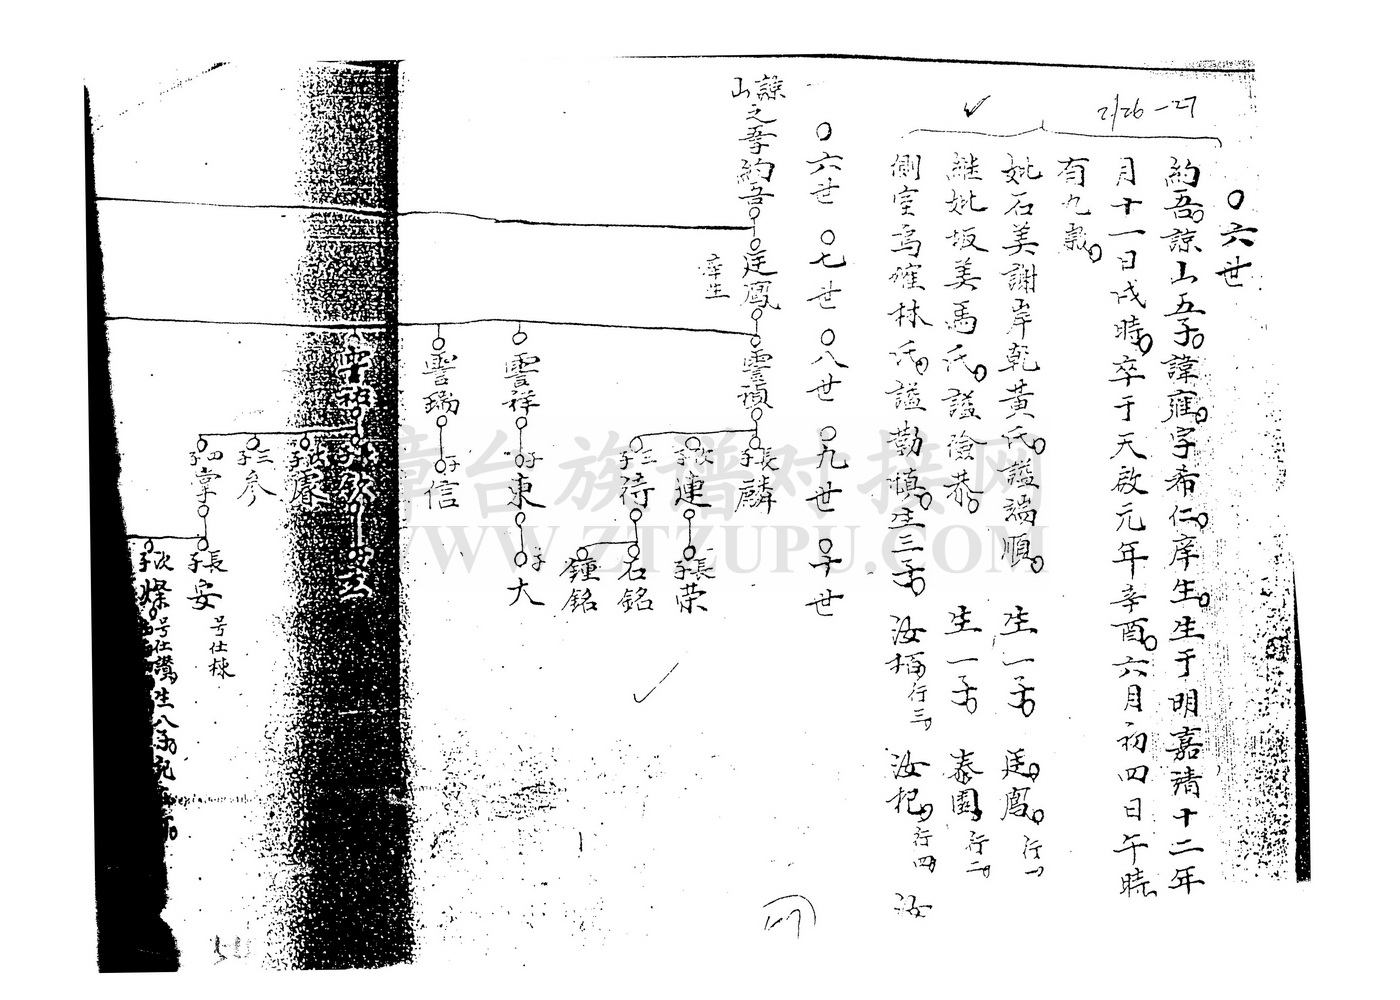 2/26-27
○六世
約吾諒山五子諱㢕字希仁庠生生于明嘉靖十二年
月十一日戌時卒于天啟元年辛酉六月初四日午時
有九歲
妣石美謝岸乾黃氏謚端順 生一子 廷鳳 行一
繼妣坂美馬氏謚儉恭 生一子 泰園 行二
側室烏嶐林氏謚勤慎生三子 汝栢行三 汝杞行四 汝
○六世 ○七世 ○八世 ○九世 ○十世
諒山之子約吾
廷鳳
庠生
雲禎
長子麟
次子連
長子榮
三子待
石銘
鐘銘
雲祥
子東
子大
雲瑞
子信
次子
三子參
四子掌
長子安
号仕棟
次子燦
号仕讚生八子
章台族谱对接网
WWW.ZTZUPU.COM